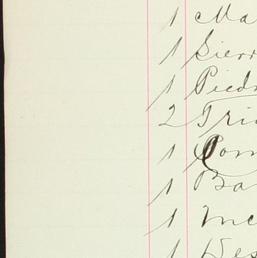 1 Ma
1 Sierr
1 Pied
2 Tri
1 Com
1 Ba
1 Mc
1 Des